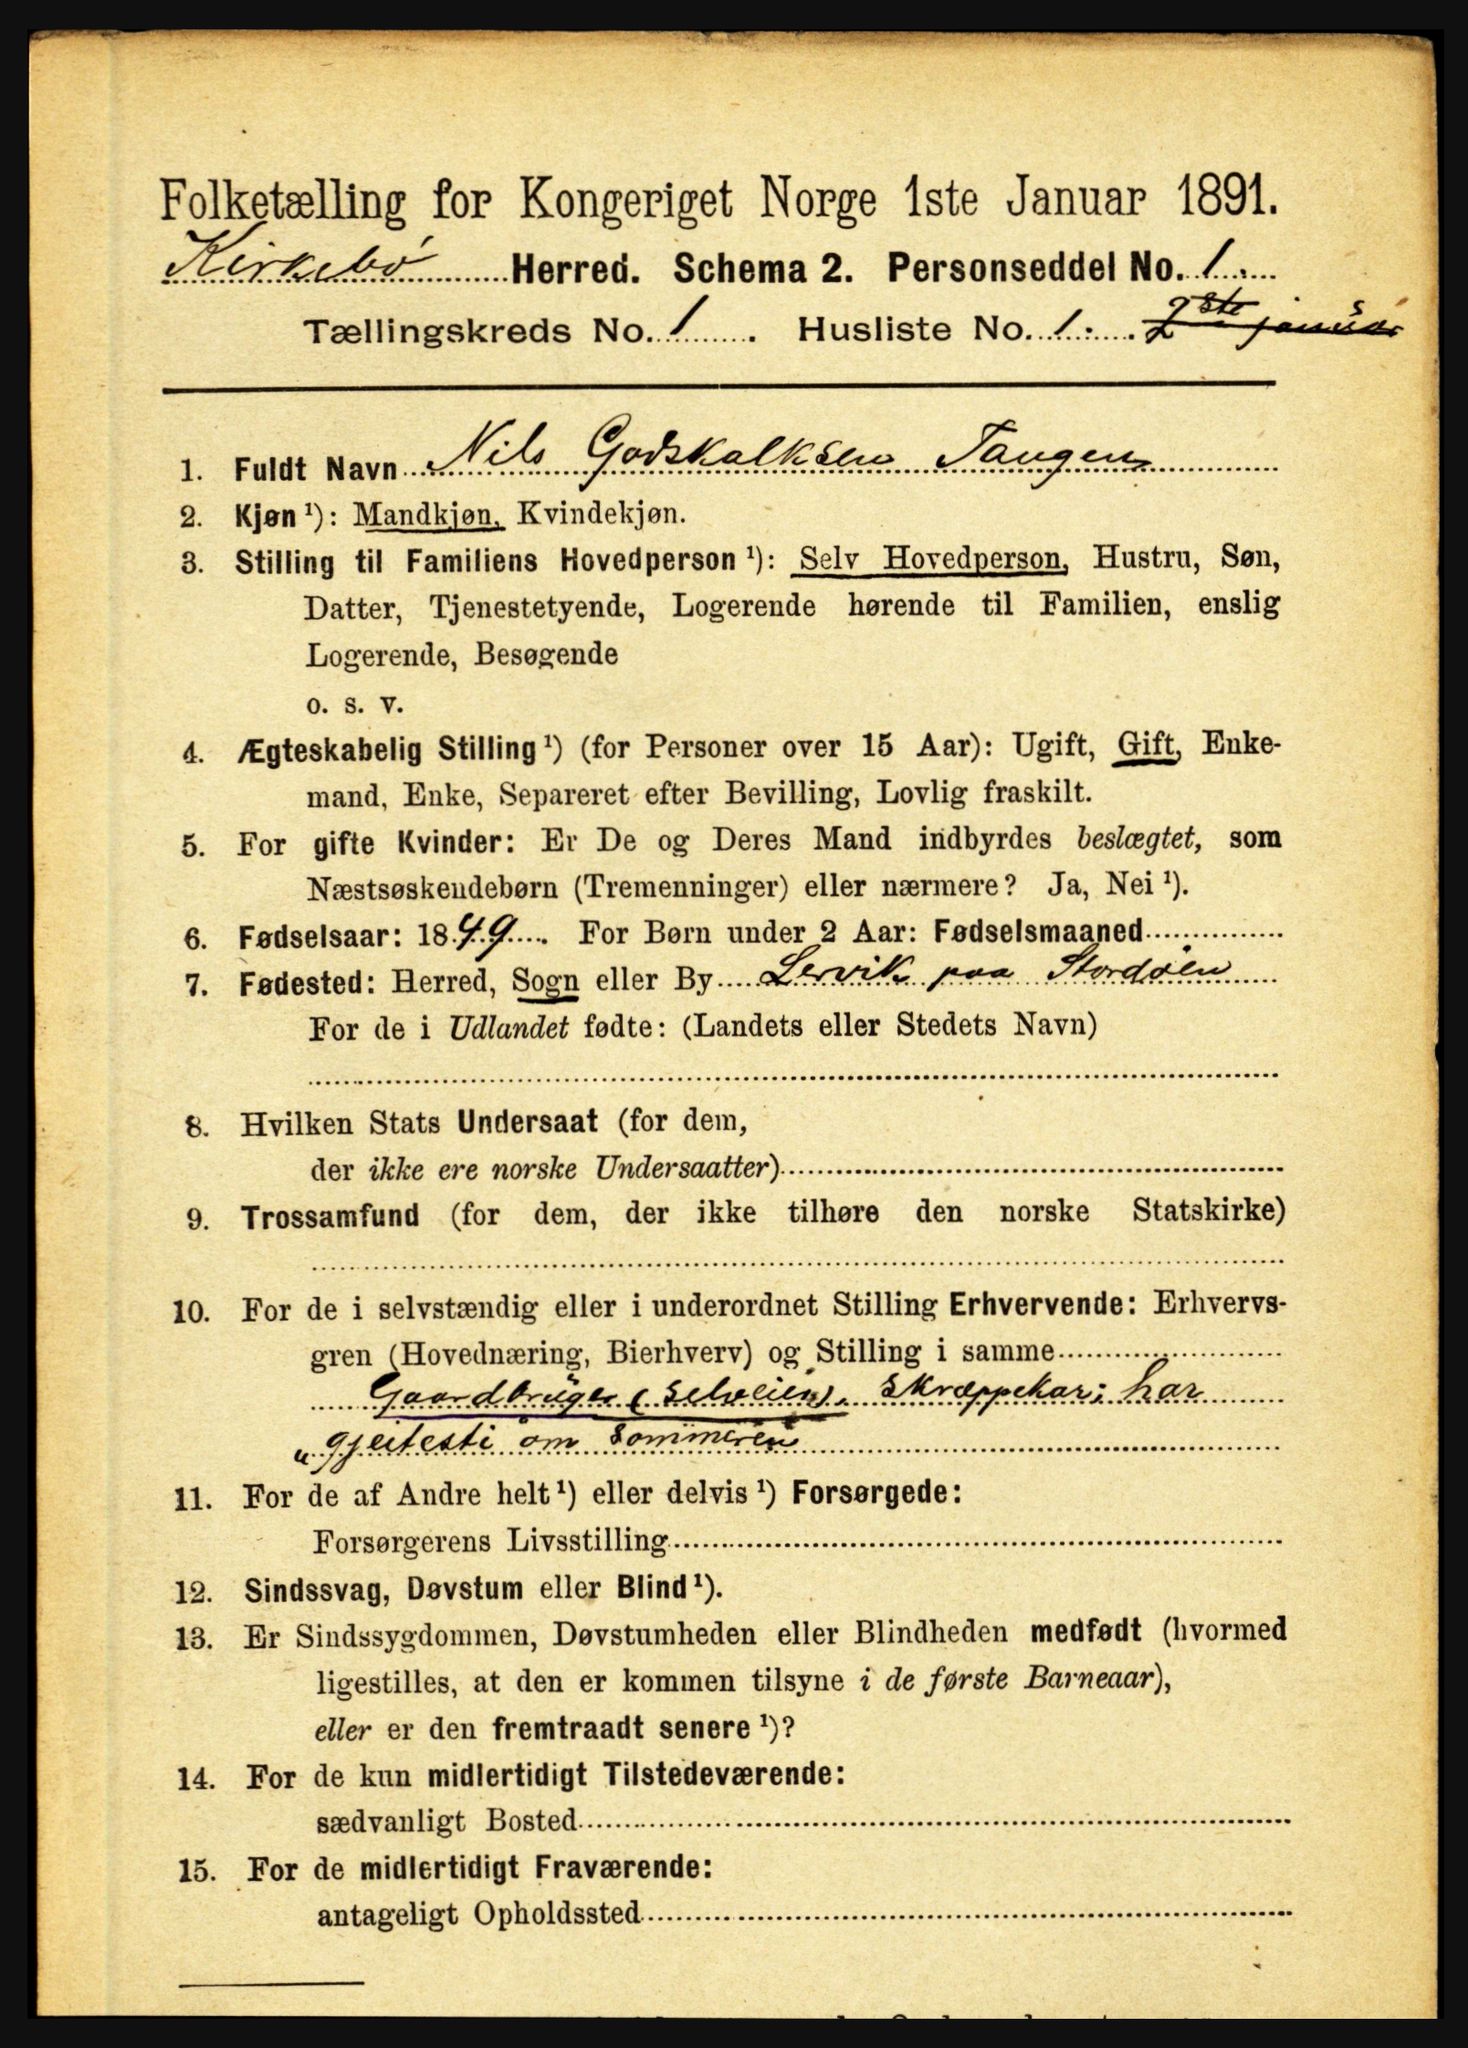 Folketælling for Kongeriget Norge 1ste Januar 1891.
Kirkebø Herred. Schema 2. Personseddel No. 1.
Tællingskreds No. 1. Husliste No. 1. 2ste januar
1. Fuldt Navn Nils Godskalksen Tangen
2. Kjøn ¹): Mandkjøn, Kvindekjøn.
3. Stilling til Familiens Hovedperson ¹): Selv Hovedperson, Hustru, Søn,
Datter, Tjenestetyende, Logerende hørende til Familien, enslig
Logerende, Besøgende
o. s. v.
4. Ægteskabelig Stilling ¹) (for Personer over 15 Aar): Ugift, Gift, Enke-
mand, Enke, Separeret efter Bevilling, Lovlig fraskilt.
5. For gifte Kvinder: Er De og Deres Mand indbyrdes beslægtet, som
Næstsøskendebørn (Tremenninger) eller nærmere? Ja, Nei ¹).
6. Fødselsaar: 1849. For Børn under 2 Aar: Fødselsmaaned
7. Fødested: Herred, Sogn eller By Lervik paa Stordøen
For de i Udlandet fødte: (Landets eller Stedets Navn)
8. Hvilken Stats Undersaat (for dem,
der ikke ere norske Undersaatter)
9. Trossamfund (for dem, der ikke tilhøre den norske Statskirke)
10. For de i selvstændig eller i underordnet Stilling Erhvervende: Erhvervs-
gren (Hovednæring, Bierhverv) og Stilling i samme
Gaardbruger (selveier). Skræppekar; har
gjeitesti om sommeren
11. For de af Andre helt ¹) eller delvis ¹) Forsørgede:
Forsørgerens Livsstilling
12. Sindssvag, Døvstum eller Blind ¹).
13. Er Sindssygdommen, Døvstumheden eller Blindheden medfødt (hvormed
ligestilles, at den er kommen tilsyne i de første Barneaar),
eller er den fremtraadt senere ¹)?
14. For de kun midlertidigt Tilstedeværende:
sædvanligt Bosted
15. For de midlertidigt Fraværende:
antageligt Opholdssted